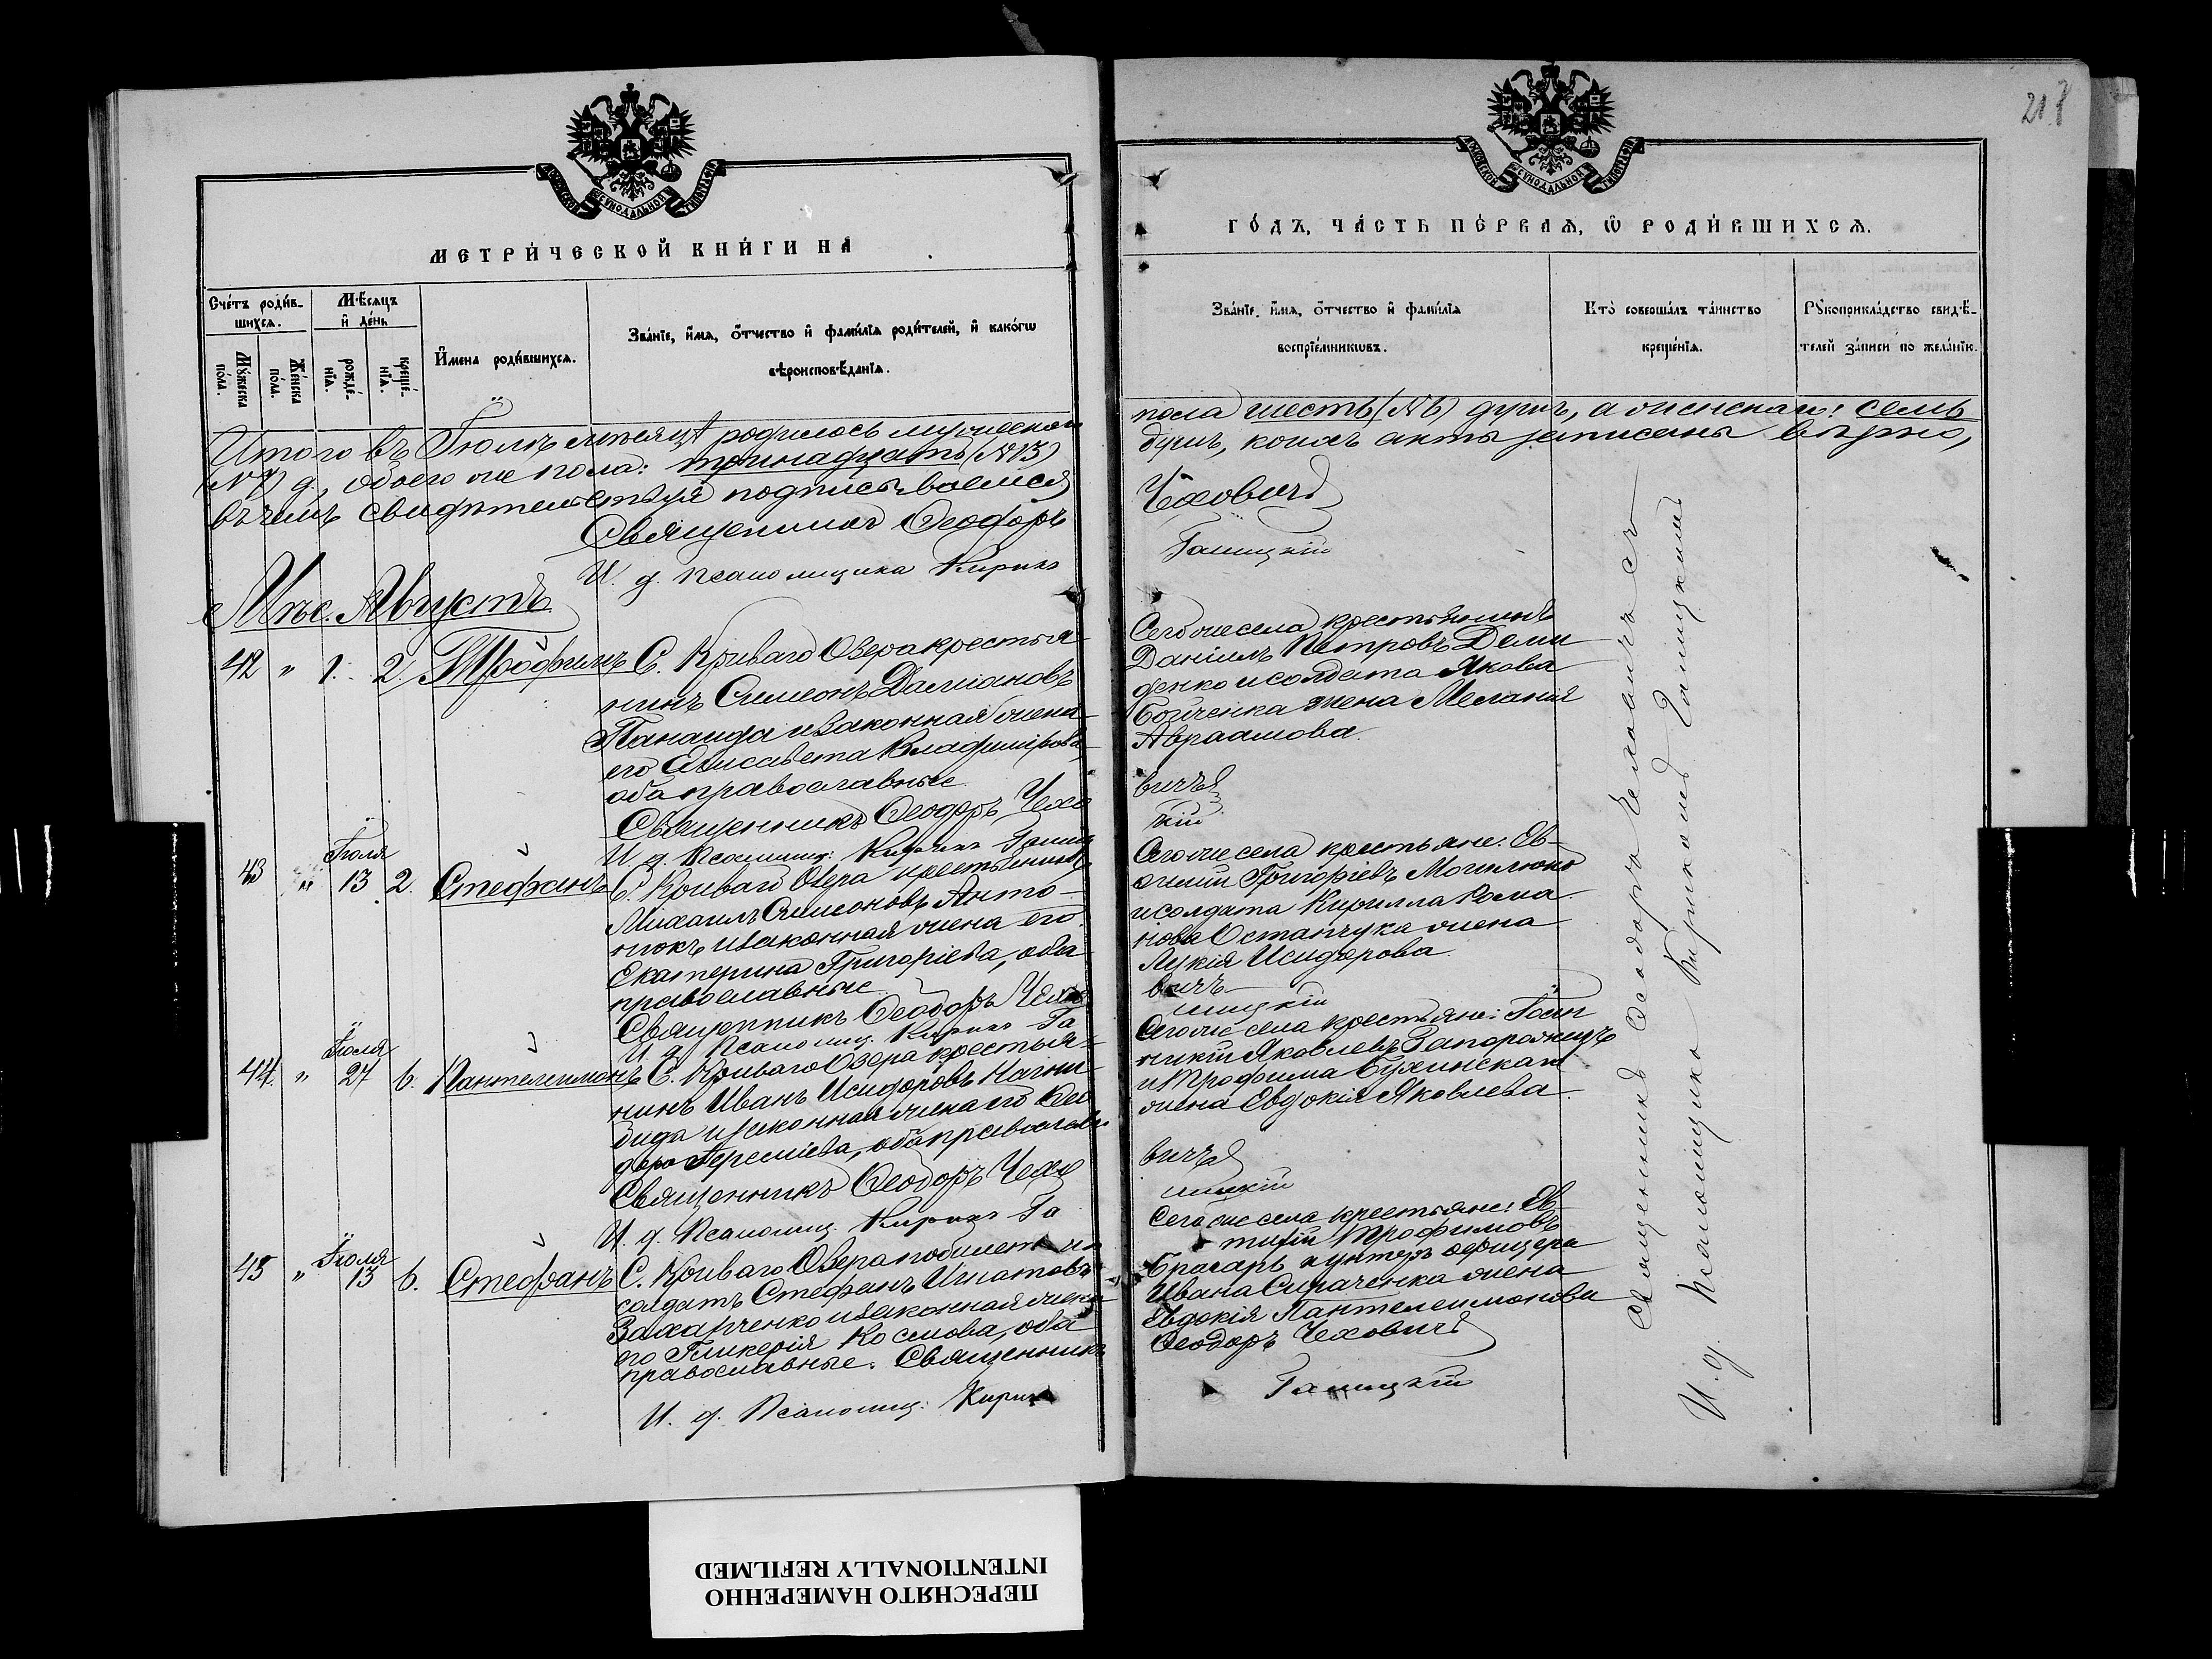 218
МЕТРИ́ЧЕСКОЙ КНИ́ГИ НА
Сче́тъ роди́в-
шихсѧ.
Мѣ́сѧцъ
и де́нь
Мꙋ́жеска
по́ла.
Же́нска
по́ла.
рожде́-
нїѧ.
креще́-
нїѧ.
И҆́мена роди́вшихсѧ.
Зва́нїе, и҆́мѧ, ѻ҆́тчество и҆ фами́лїѧ роди́телей, и҆ како́гѡ
вѣроисповѣ́данїѧ.
Итого въ Іюлѣ мѣсяцѣ родилось мужеска
(№7) д., обоего же пола: тринадцать (№13)
въ чемъ свидѣтельствуя подписываемся
Священникъ Ѳеодоръ
И. д. псаломщика Кирикъ
Мѣс. Августъ
42 " 1. 2. Трофимъ С. Криваго Озера крестья
нинъ Симеонъ Даміановъ
Панаида и законная жена
его Елисавета Владимірова,
оба православные.
Священникъ Ѳеодоръ Чехо
И. д. Псаломщ: Кирикъ Галиц
Іюля
43 " 13 2. Стефанъ С. Криваго Озера крестьянинъ
Михаилъ Симеоновъ Анто-
нюкъ и законная жена его
Екатерина Григоріева, оба
православные.
Священникъ Ѳеодоръ Чехо
И. д. Псаломщ. Кирикъ Га
Іюля
44. " 27 6. Пантелеимонъ С. Криваго Озера крестья-
нинъ Иванъ Исидоровъ Нагни-
бида и законная жена его Ѳео
дора Іереміева, оба православн
Священникъ Ѳеодоръ Чехо
И. д. Псаломщ. Кирикъ Га
Іюля
45 " 13 6. Стефанъ С. Криваго Озера побилетный
солдатъ Стефанъ Игнатовъ
Захарченко и законная жена
его Гликерія Космова, оба
православные. Священникъ
И. д. Псаломщ: Кирикъ
ГО́ДЪ, ЧА́СТЬ ПЕ́РВАѦ, Ѡ҆ РОДИ́ВШИХСѦ.
Зва́нїе, и҆́мѧ, ѻ҆́тчество и҆ фами́лїѧ
воспрїе́мникѡвъ.
Кто̀ соверша́лъ та́инство
креще́нїѧ.
Рꙋкоприкла́дство свидѣ́-
телей за́писи по жела́нїю.
пола шесть (№6) душъ, а женскаго: семь
душъ, коихъ акты записаны вѣрно,
Чеховичъ
Галицкій
Сего же села крестьянинъ
Даніилъ Петровъ Деми
денко и солдата Якова
Бойченка жена Меланія
Авраамова.
вичъ
кій
Сего же села крестьяне: Ев-
ѳимій Григоріевъ Могилюкъ
и солдата Кирилла Рома
нова Остапчука жена
Лукія Исидорова.
вичъ
лицкій
Сего же села крестьяне: Іоан
никій Яковлевъ Запорожецъ
и Трофима Бужинскаго
жена Евдокія Яковлева.
вичъ
лицкій
Сего же села крестьяне: Ев-
тихій Трофимовъ
Брагарь и унтеръ офицера
Ивана Сыраченка жена
Евдокія Пантелеимонова
Ѳеодоръ Чеховичъ
Галицкій
Священникъ Ѳеодоръ Чеховичъ съ
И. д. Псаломщика Кирикомъ Галицкимъ
ПЕРЕСНЯТО НАМЕРЕННО
INTENTIONALLY REFILMED